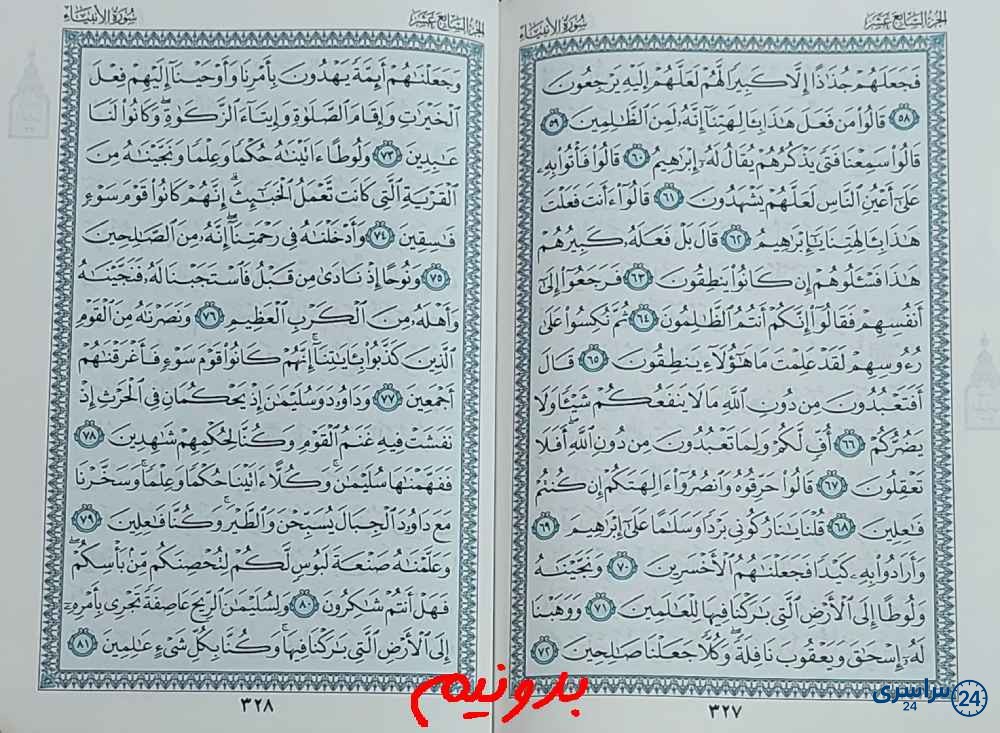 الجزء السابع عشر
سورة الأنبياء
فَجَعَلَهُمْ جُذَاذًا إِلَّا كَبِيرًا لَّهُمْ لَعَلَّهُمْ إِلَيْهِ يَرْجِعُونَ
﴿٥٨﴾ قَالُوا۟ مَن فَعَلَ هَٰذَا بِـَٔالِهَتِنَآ إِنَّهُۥ لَمِنَ ٱلظَّٰلِمِينَ ﴿٥٩﴾
قَالُوا۟ سَمِعْنَا فَتًى يَذْكُرُهُمْ يُقَالُ لَهُۥٓ إِبْرَٰهِيمُ ﴿٦٠﴾ قَالُوا۟ فَأْتُوا۟ بِهِۦ
عَلَىٰٓ أَعْيُنِ ٱلنَّاسِ لَعَلَّهُمْ يَشْهَدُونَ ﴿٦١﴾ قَالُوٓا۟ ءَأَنتَ فَعَلْتَ
هَٰذَا بِـَٔالِهَتِنَا يَٰٓإِبْرَٰهِيمُ ﴿٦٢﴾ قَالَ بَلْ فَعَلَهُۥ كَبِيرُهُمْ
هَٰذَا فَسْـَٔلُوهُمْ إِن كَانُوا۟ يَنطِقُونَ ﴿٦٣﴾ فَرَجَعُوٓا۟ إِلَىٰٓ
أَنفُسِهِمْ فَقَالُوٓا۟ إِنَّكُمْ أَنتُمُ ٱلظَّٰلِمُونَ ﴿٦٤﴾ ثُمَّ نُكِسُوا۟ عَلَىٰ
رُءُوسِهِمْ لَقَدْ عَلِمْتَ مَا هَٰٓؤُلَآءِ يَنطِقُونَ ﴿٦٥﴾ قَالَ
أَفَتَعْبُدُونَ مِن دُونِ ٱللَّهِ مَا لَا يَنفَعُكُمْ شَيْـًٔا وَلَا
يَضُرُّكُمْ ﴿٦٦﴾ أُفٍّ لَّكُمْ وَلِمَا تَعْبُدُونَ مِن دُونِ ٱللَّهِ أَفَلَا
تَعْقِلُونَ ﴿٦٧﴾ قَالُوا۟ حَرِّقُوهُ وَٱنصُرُوٓا۟ ءَالِهَتَكُمْ إِن كُنتُمْ
فَٰعِلِينَ ﴿٦٨﴾ قُلْنَا يَٰنَارُ كُونِى بَرْدًا وَسَلَٰمًا عَلَىٰٓ إِبْرَٰهِيمَ ﴿٦٩﴾
وَأَرَادُوا۟ بِهِۦ كَيْدًا فَجَعَلْنَٰهُمُ ٱلْأَخْسَرِينَ ﴿٧٠﴾ وَنَجَّيْنَٰهُ
وَلُوطًا إِلَى ٱلْأَرْضِ ٱلَّتِى بَٰرَكْنَا فِيهَا لِلْعَٰلَمِينَ ﴿٧١﴾ وَوَهَبْنَا
لَهُۥٓ إِسْحَٰقَ وَيَعْقُوبَ نَافِلَةً وَكُلًّا جَعَلْنَا صَٰلِحِينَ ﴿٧٢﴾
٣٢٧
الجزء السابع عشر
سورة الأنبياء
وَجَعَلْنَٰهُمْ أَئِمَّةً يَهْدُونَ بِأَمْرِنَا وَأَوْحَيْنَآ إِلَيْهِمْ فِعْلَ
ٱلْخَيْرَٰتِ وَإِقَامَ ٱلصَّلَوٰةِ وَإِيتَآءَ ٱلزَّكَوٰةِ وَكَانُوا۟ لَنَا
عَٰبِدِينَ ﴿٧٣﴾ وَلُوطًا ءَاتَيْنَٰهُ حُكْمًا وَعِلْمًا وَنَجَّيْنَٰهُ مِنَ
ٱلْقَرْيَةِ ٱلَّتِى كَانَت تَّعْمَلُ ٱلْخَبَٰٓئِثَ إِنَّهُمْ كَانُوا۟ قَوْمَ سَوْءٍ
فَٰسِقِينَ ﴿٧٤﴾ وَأَدْخَلْنَٰهُ فِى رَحْمَتِنَآ إِنَّهُۥ مِنَ ٱلصَّٰلِحِينَ
﴿٧٥﴾ وَنُوحًا إِذْ نَادَىٰ مِن قَبْلُ فَٱسْتَجَبْنَا لَهُۥ فَنَجَّيْنَٰهُ
وَأَهْلَهُۥ مِنَ ٱلْكَرْبِ ٱلْعَظِيمِ ﴿٧٦﴾ وَنَصَرْنَٰهُ مِنَ ٱلْقَوْمِ
ٱلَّذِينَ كَذَّبُوا۟ بِـَٔايَٰتِنَآ إِنَّهُمْ كَانُوا۟ قَوْمَ سَوْءٍ فَأَغْرَقْنَٰهُمْ
أَجْمَعِينَ ﴿٧٧﴾ وَدَاوُۥدَ وَسُلَيْمَٰنَ إِذْ يَحْكُمَانِ فِى ٱلْحَرْثِ إِذْ
نَفَشَتْ فِيهِ غَنَمُ ٱلْقَوْمِ وَكُنَّا لِحُكْمِهِمْ شَٰهِدِينَ ﴿٧٨﴾
فَفَهَّمْنَٰهَا سُلَيْمَٰنَ وَكُلًّا ءَاتَيْنَا حُكْمًا وَعِلْمًا وَسَخَّرْنَا
مَعَ دَاوُۥدَ ٱلْجِبَالَ يُسَبِّحْنَ وَٱلطَّيْرَ وَكُنَّا فَٰعِلِينَ ﴿٧٩﴾
وَعَلَّمْنَٰهُ صَنْعَةَ لَبُوسٍ لَّكُمْ لِتُحْصِنَكُم مِّنۢ بَأْسِكُمْ
فَهَلْ أَنتُمْ شَٰكِرُونَ ﴿٨٠﴾ وَلِسُلَيْمَٰنَ ٱلرِّيحَ عَاصِفَةً تَجْرِى بِأَمْرِهِۦٓ
إِلَى ٱلْأَرْضِ ٱلَّتِى بَٰرَكْنَا فِيهَا وَكُنَّا بِكُلِّ شَىْءٍ عَٰلِمِينَ ﴿٨١﴾
٣٢٨
بدونیم
سراسری 24
24